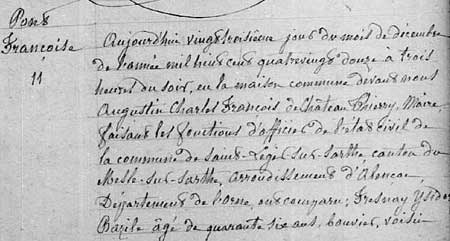 Pons
Françoise
11
Aujourd'hui vingt troisième jour du mois de décembre
de l'année mil huit cent quatrevingt douze à trois
heures du soir, en la maison commune devant nous
Augustin Charles François de Château Thierry, Maire
faisant les fonctions d'officier de l'état civil de
la commune de Saint-Léger-sur-Sarthe, canton du
Mesle-sur-Sarthe, arrondissement d'Alençon
Département de l'orne, ont comparu; Fresnay Ysidor
Bazile âgé de quarante six ans, bouvier, voisin